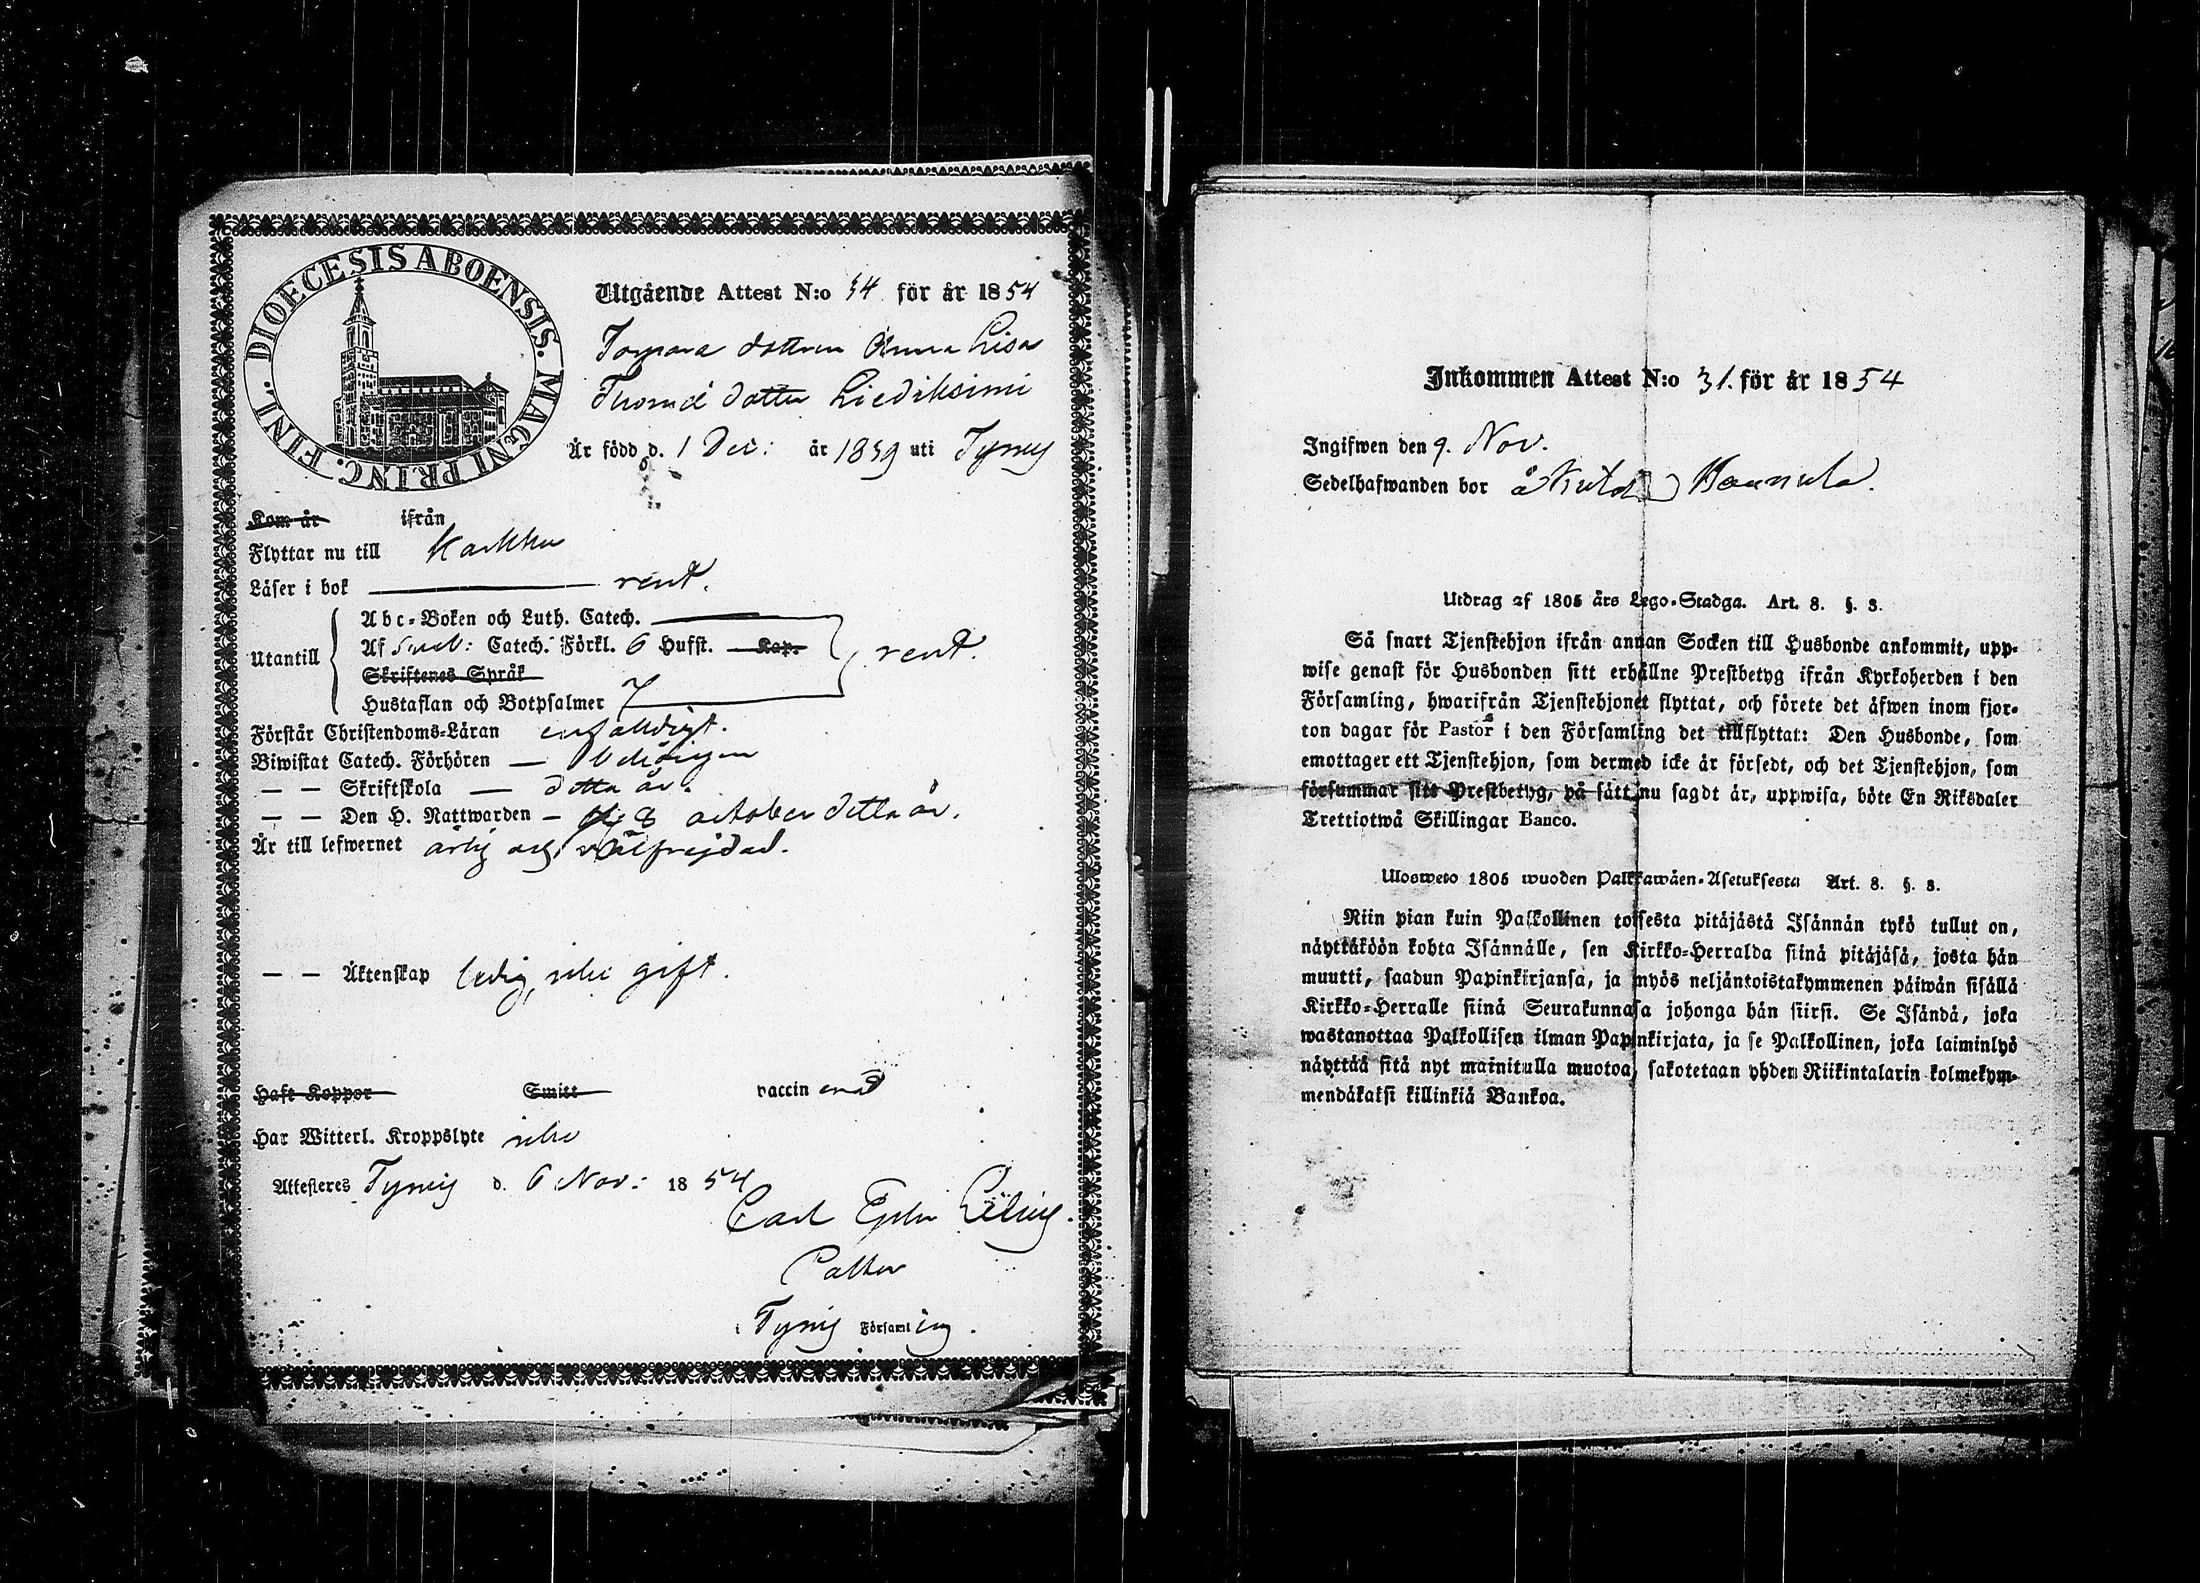 DIOECESIS ABOENSIS. MAGNI PRINC. FINL.
Utgående Attest N:o 54 för år 1854
Torpare dottren Anna Lisa
Thomæ dotter Liediksimi
Är född d. 1 Dec: år 1839 uti Tyrvis
Kom år ifrån
Flyttar nu till Karkku
Läser i bok rent.
Utantill
Abc-Boken och Luth. Catech.
Af Sveb: Catech. Förkl. 6 Hufst. Kap.
rent.
Skriftenes Språk
Hustaflan och Botpsalmer 7
Förstår Christendoms-Läran enfaldigt.
Biwistat Catech. Förhören — behörigen
— — Skriftskola — detta år.
— — Den H. Nattwarden — 8 october detta år.
Är till lefwernet ärlig och välfrejdad.
— — Äktenskap ledig, icke gift.
Haft Koppor Smitt vaccinerad
Har Witterl. Kroppslyte icke
Attesteres Tyrvis d. 6 Nov: 1854
Carl
Pastor
i Tyrvis Församling.
Inkommen Attest N:o 31. för år 1854
Ingifwen den 9. Nov.
Sedelhafwanden bor å Kutala Hannula.
Utdrag af 1805 års Lego-Stadga. Art. 8. §. 3.
Så snart Tjenstehjon ifrån annan Socken till Husbonde ankommit, upp-
wise genast för Husbonden sitt erhållne Prestbetyg ifrån Kyrkoherden i den
Församling, hwarifrån Tjenstehjonet flyttat, och förete det äfwen inom fjor-
ton dagar för Pastor i den Församling det tillflyttat: Den Husbonde, som
emottager ett Tjenstehjon, som dermed icke är försedt, och det Tjenstehjon, som
försummar sitt Prestbetyg, på sätt nu sagdt är, uppwisa, böte En Riksdaler
Trettiotwå Skillingar Banco.
Ulosweto 1805 wuoden Palkkawäen-Asetuksesta Art. 8. §. 3.
Niin pian kuin Palkollinen toisesta pitäjästä Isännän tykö tullut on,
näyttäköön kohta Isännälle, sen Kirkko-Herralda siinä pitäjäsä, josta hän
muutti, saadun Papinkirjansa, ja myös neljäntoistakymmenen päiwän sisällä
Kirkko-Herralle siinä Seurakunnasa johonga hän siirsi. Se Isändä, joka
wastanottaa Palkollisen ilman Papinkirjata, ja se Palkollinen, joka laiminlyö
näyttää sitä nyt mainitulla muotoa, sakotetaan yhden Riikintalarin kolmekym-
mendäkaksi killinkiä Bankoa.